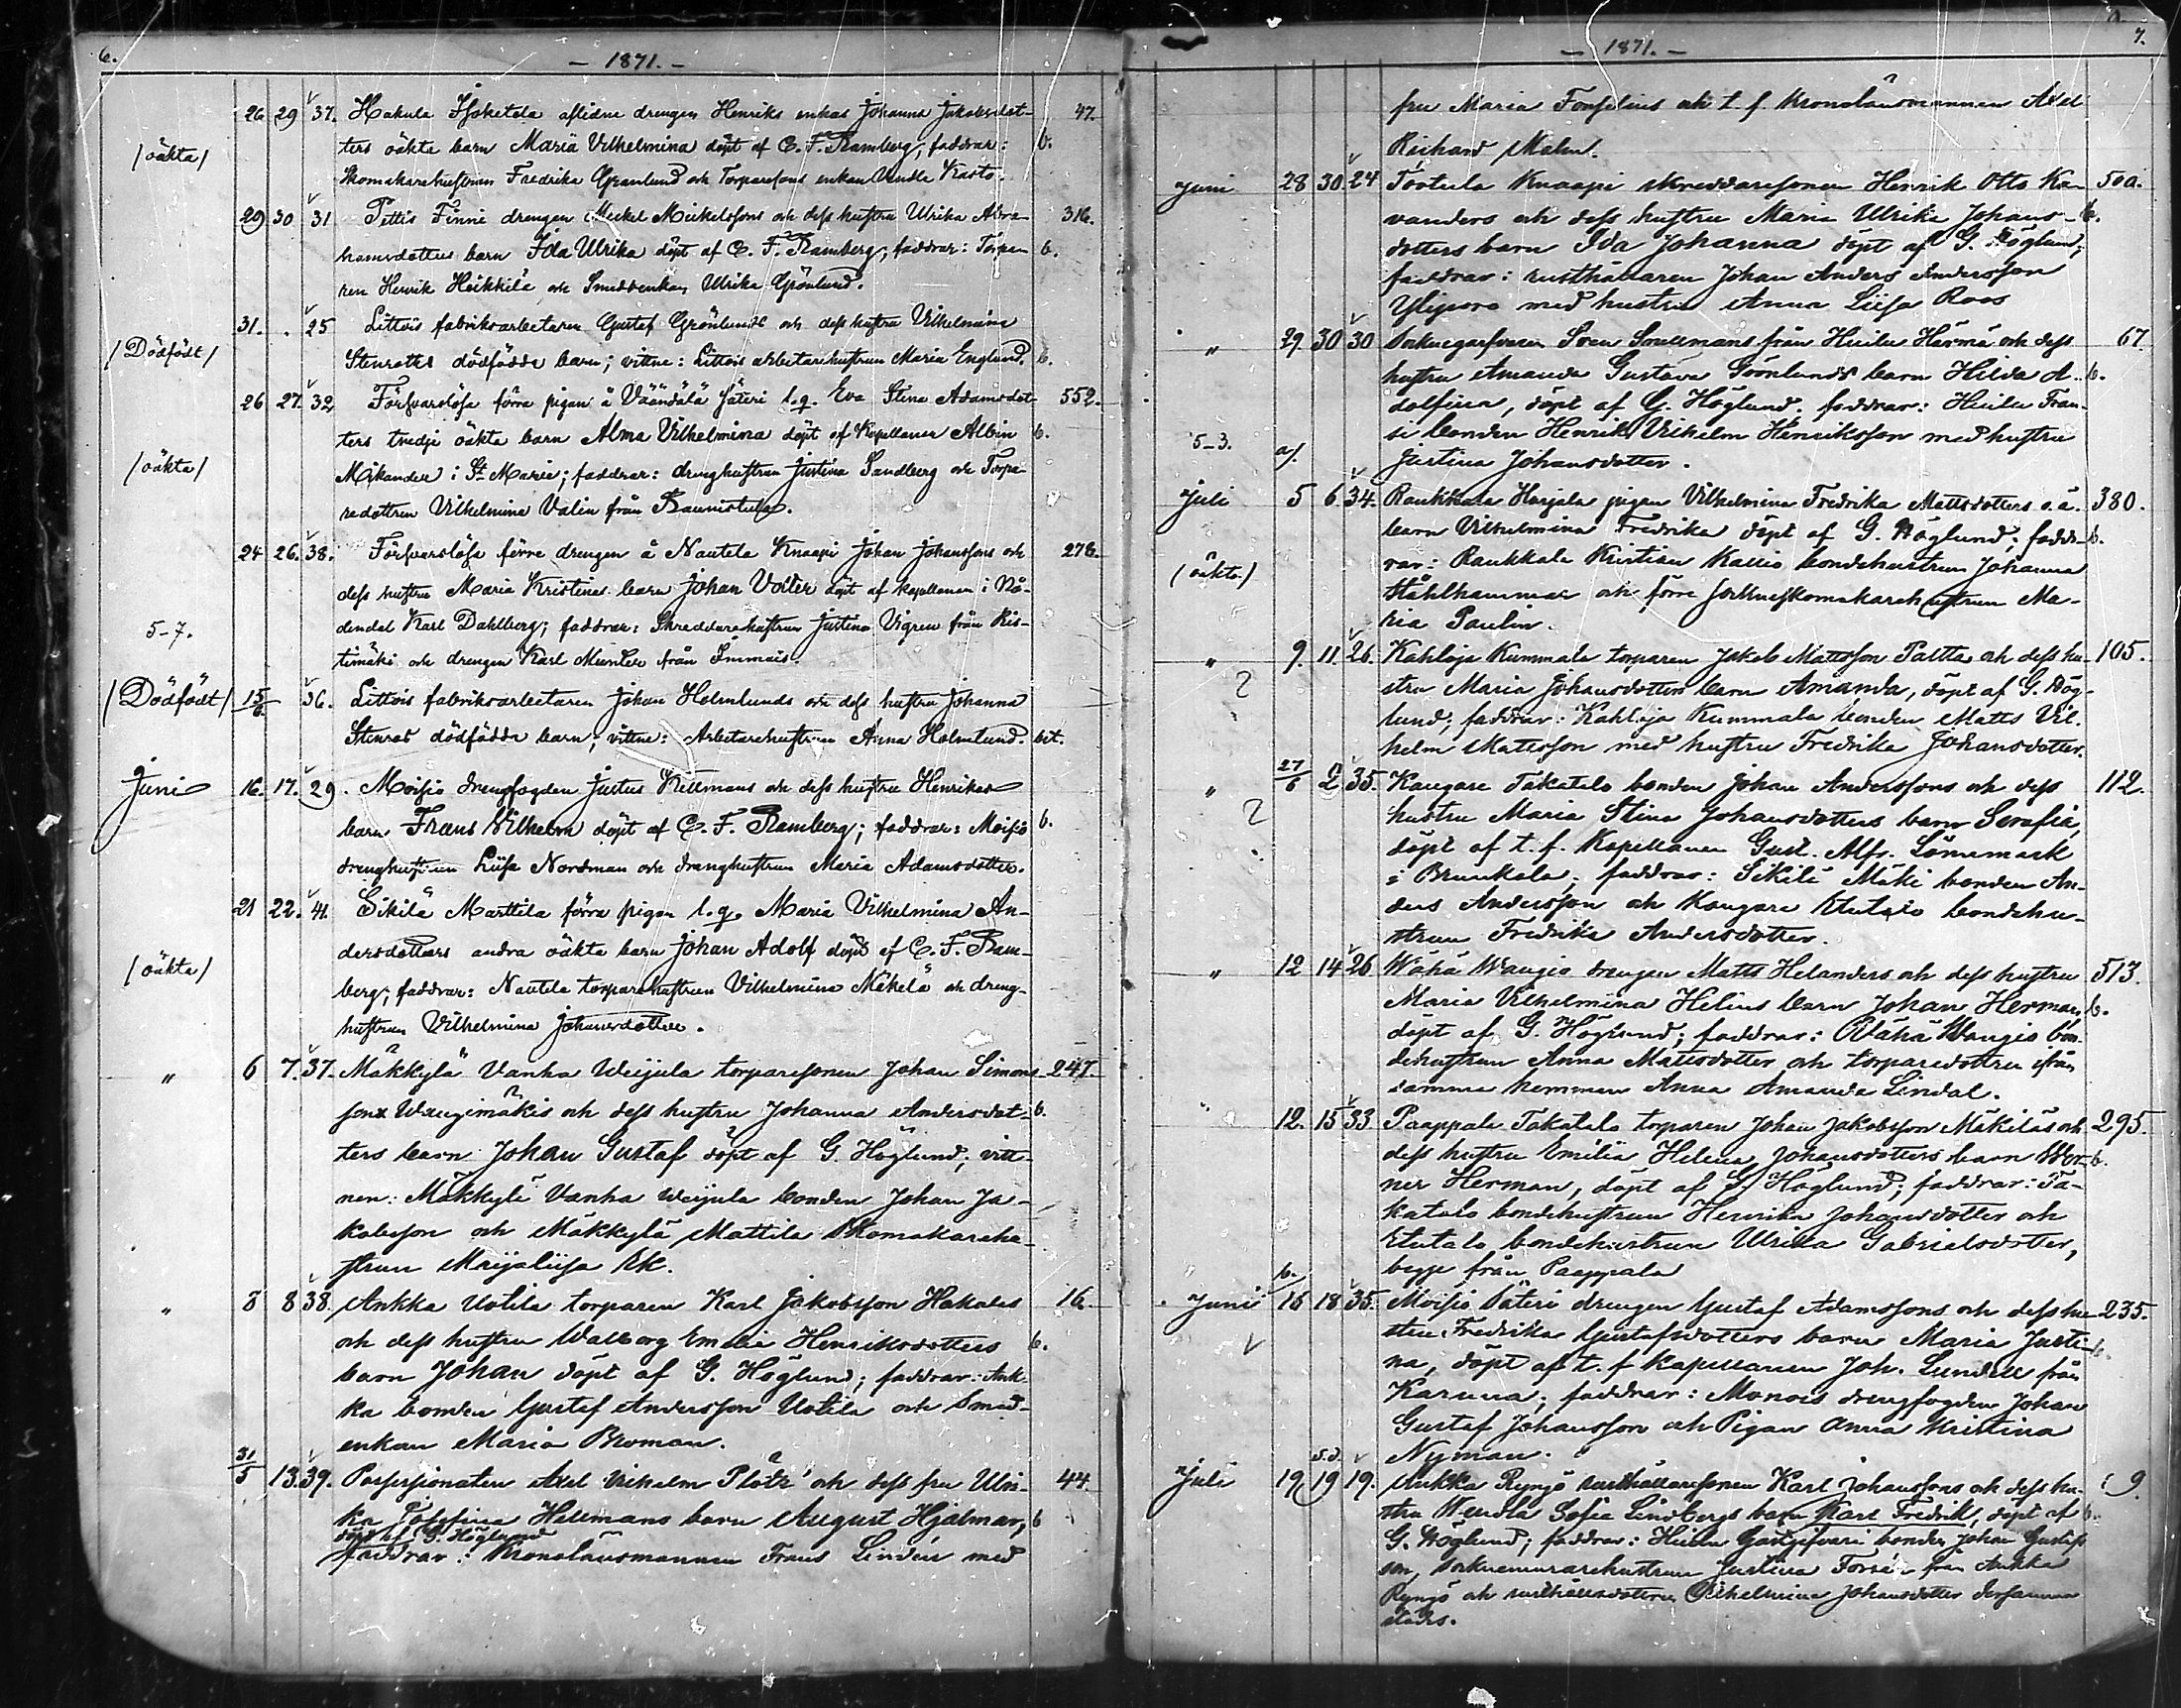 6.
- 1871. -
26 29 37. Hakula Isoketola aflidne drengen Henriks enkas Johanna Jakobsdot- 47.
/oäkta/ ters oäkta barn Maria Vilhelmina döpt af C. F. Ramberg; faddrar: b.
Skomakarehustrun Fredrika Granlund och Torparesons enkan Vendla Kasto.
29 30 31 Pettis Finni drengen Mickel Mickelssons och dess hustru Ulrika Abra- 316.
hamsdotters barn Ida Ulrika döpt af C. F. Ramberg; faddrar: Torpa- b.
ren Henrik Heikkilä och Smedsenkan Ulrika Grönlund.
31. 25 Littois fabriksarbetaren Gustaf Grönlunds och dess hustru Vilhelmina
/Dödfödt/ Stenroths dödfödda barn; vittne: Littois arbetarehustrun Maria Englund. b.
26 27. 32 Förfvarslösa förra pigan å Väändälä säteri l.q. Eva Stina Adamsdot- 552.
ters tredje oäkta barn Alma Vilhelmina döpt af Kapellanen Albin b.
/oäkta/ Mikander i St Marie; faddrar: drenghustrun Justina Sandberg och Torpa-
redottren Vilhelmina Valin från Raunistula.
24 26. 38. Förfvarslösa förre drengen å Nautela Knaapi Johan Johanssons och 278.
dess hustru Maria Kristinas barn Johan Volter döpt af kapellanen i Nå-
5-7. dendal Karl Dahlberg; faddrar: Skreddarehustrun Justina Vigren från Ris-
timäki och drengen Karl Munter från Immais.
/Dödfödt/ 15/6 36. Littois fabriksarbetaren Johan Holmlunds och dess hustru Johanna
Stenros dödfödda barn; vittne: Arbetarehustrun Anna Holmlund. bet.
Juni 16. 17. 29. Moisio drengfogden Justus Kellmans och dess hustru Henrikas
barn Frans Vilhelm döpt af C. F. Ramberg; faddrar: Moisio b.
drenghustrun Liisa Nordman och drenghustrun Maria Adamsdotter.
21 22. 41. Sikilä Marttila förra pigan l.q. Maria Vilhelmina An-
dersdotters andra oäkta barn Johan Adolf döpt af C. F. Ram-
/oäkta/ berg; faddrar: Nautela torparehustrun Vilhelmina Mäkelä och dreng-
hustrun Vilhelmina Johansdotter.
" 6 7. 37. Mäkkylä Vanha Weijula torparesonen Johan Simons- 247.
sons Waugimäkis och dess hustru Johanna Andersdot- b.
ters barn Johan Gustaf döpt af G. Höglund; vitt-
nen: Mäkkylä Vanha Weijula bonden Johan Ja-
kobsson och Mäkkylä Mattila Skomakarehu-
strun Maijaliisa Ek.
" 8 8 38. Ankka Uotila torparen Karl Jakobsson Hakalas 16.
och dess hustru Walborg Emelie Henriksdotters b.
barn Johan döpt af G. Höglund; faddrar: Ank-
ka bonden Gustaf Andersson Uotila och Smed-
enkan Maria Broman.
31/5 13. 39. Possessionaten Axel Vilhelm Plotz' och dess fru Ulri- 44
ka Josefina Hellmans barn August Hjalmar, b
döpt af G. Höglund
faddrar: Kronolänsmannen Frans Lindén med
7.
- 1871. -
fru Maria Fonselius och t. f. Kronolänsmannen Axel
Richard Malm.
Juni 28 30. 24 Tortula Knaapi skreddaresonen Henrik Otto Ka- 50a.
vanders och dess hustru Maria Ulrika Johans- b.
dotters barn Ida Johanna döpt af G. Höglund;
faddrar: rusthållaren Johan Anders Andersson
Yliporo med hustru Anna Liisa Roos
" 29. 30 30 Socknegarfvaren Sven Snellmans från Huilu Härmä och dess 67.
hustru Amanda Gustava Grönlunds barn Hilda A- b.
dolfina, döpt af G. Höglund. faddrar: Huilu Fran-
5-3. a/. si bonden Henrik Vilhelm Henriksson med hustru
Justina Johansdotter.
Juli 5 6. 34. Raukkala Harjala pigan Vilhelmina Fredrika Mattsdotters o.ä. 380.
barn Vilhelmina Fredrika döpt af G. Höglund; fadd- b.
(oäkta) rar: Raukkala Kristian Kallio bondehustrun Johanna
Ståhlhammar och förre sockneskomakarehustrun Ma-
ria Paulin.
" 9. 11. 26. Kahloja Kummala torparen Jakob Mattsson Paltta och dess hu- 105.
stru Maria Johansdotters barn Amanda, döpt af G. Hög-
lund; faddrar: Kahloja Kummala bonden Matts Vil-
helm Mattsson med hustru Fredrika Johansdotter.
" 27/6 2 35. Kaugare Takatalo bonden Johan Anderssons och dess 112.
hustru Maria Stina Johansdotters barn Serafia,
döpt af t. f. Kapellanen Gust. Alfr. Lönnmark
i Brunkala; faddrar: Sikilä Mäki bonden An-
ders Andersson och Kaugare Etutalo bondehu-
strun Fredrika Andersdotter.
" 12 14 26 Wähä Waugio drengen Matts Helanders och dess hustru 513.
Maria Vilhelmina Helins barn Johan Herman, b.
döpt af G. Höglund; faddrar: Wähä Waugio bon-
dehustrun Anna Mattsdotter och torparedottren från
samma hemman Anna Amanda Lindal.
12. 15 33 Paappala Takatalo torparen Johan Jakobsson Mäkiläs och 295.
dess hustru Emilia Helena Johansdotters barn Wer- b.
ner Herman, döpt af G. Höglund; faddrar: Ta-
katalo bondehustrun Henrika Johansdotter och
Etutalo bondehustrun Ulrika Gabrielsdotter,
begge från Paappala
Juni 16 18 35. Moisio Säteri drengen Gustaf Adamssons och dess hu- 235.
stru Fredrika Gustafsdotters barn Maria Justi- b.
na, döpt af t. f. Kapellanen Joh. Lundell från
Karuna; faddrar: Monois drengfogden Johan
Gustaf Johansson och Pigan Anna Kristina
Nyman.
Juli 19 19 19. Ankka Rynjö rusthållaresonen Karl Johanssons och dess hu- 9.
stru Wendla Sofia Lindbergs barn Karl Fredrik, döpt af b.
G. Höglund; faddrar: Huilu Gästgifvari bonden Johan Gustafs-
son, socknemurarehustrun Justina Forsén från Ankka
Rynjö och rusthållaredottren Vilhelmina Johansdotter dersamma
städes.